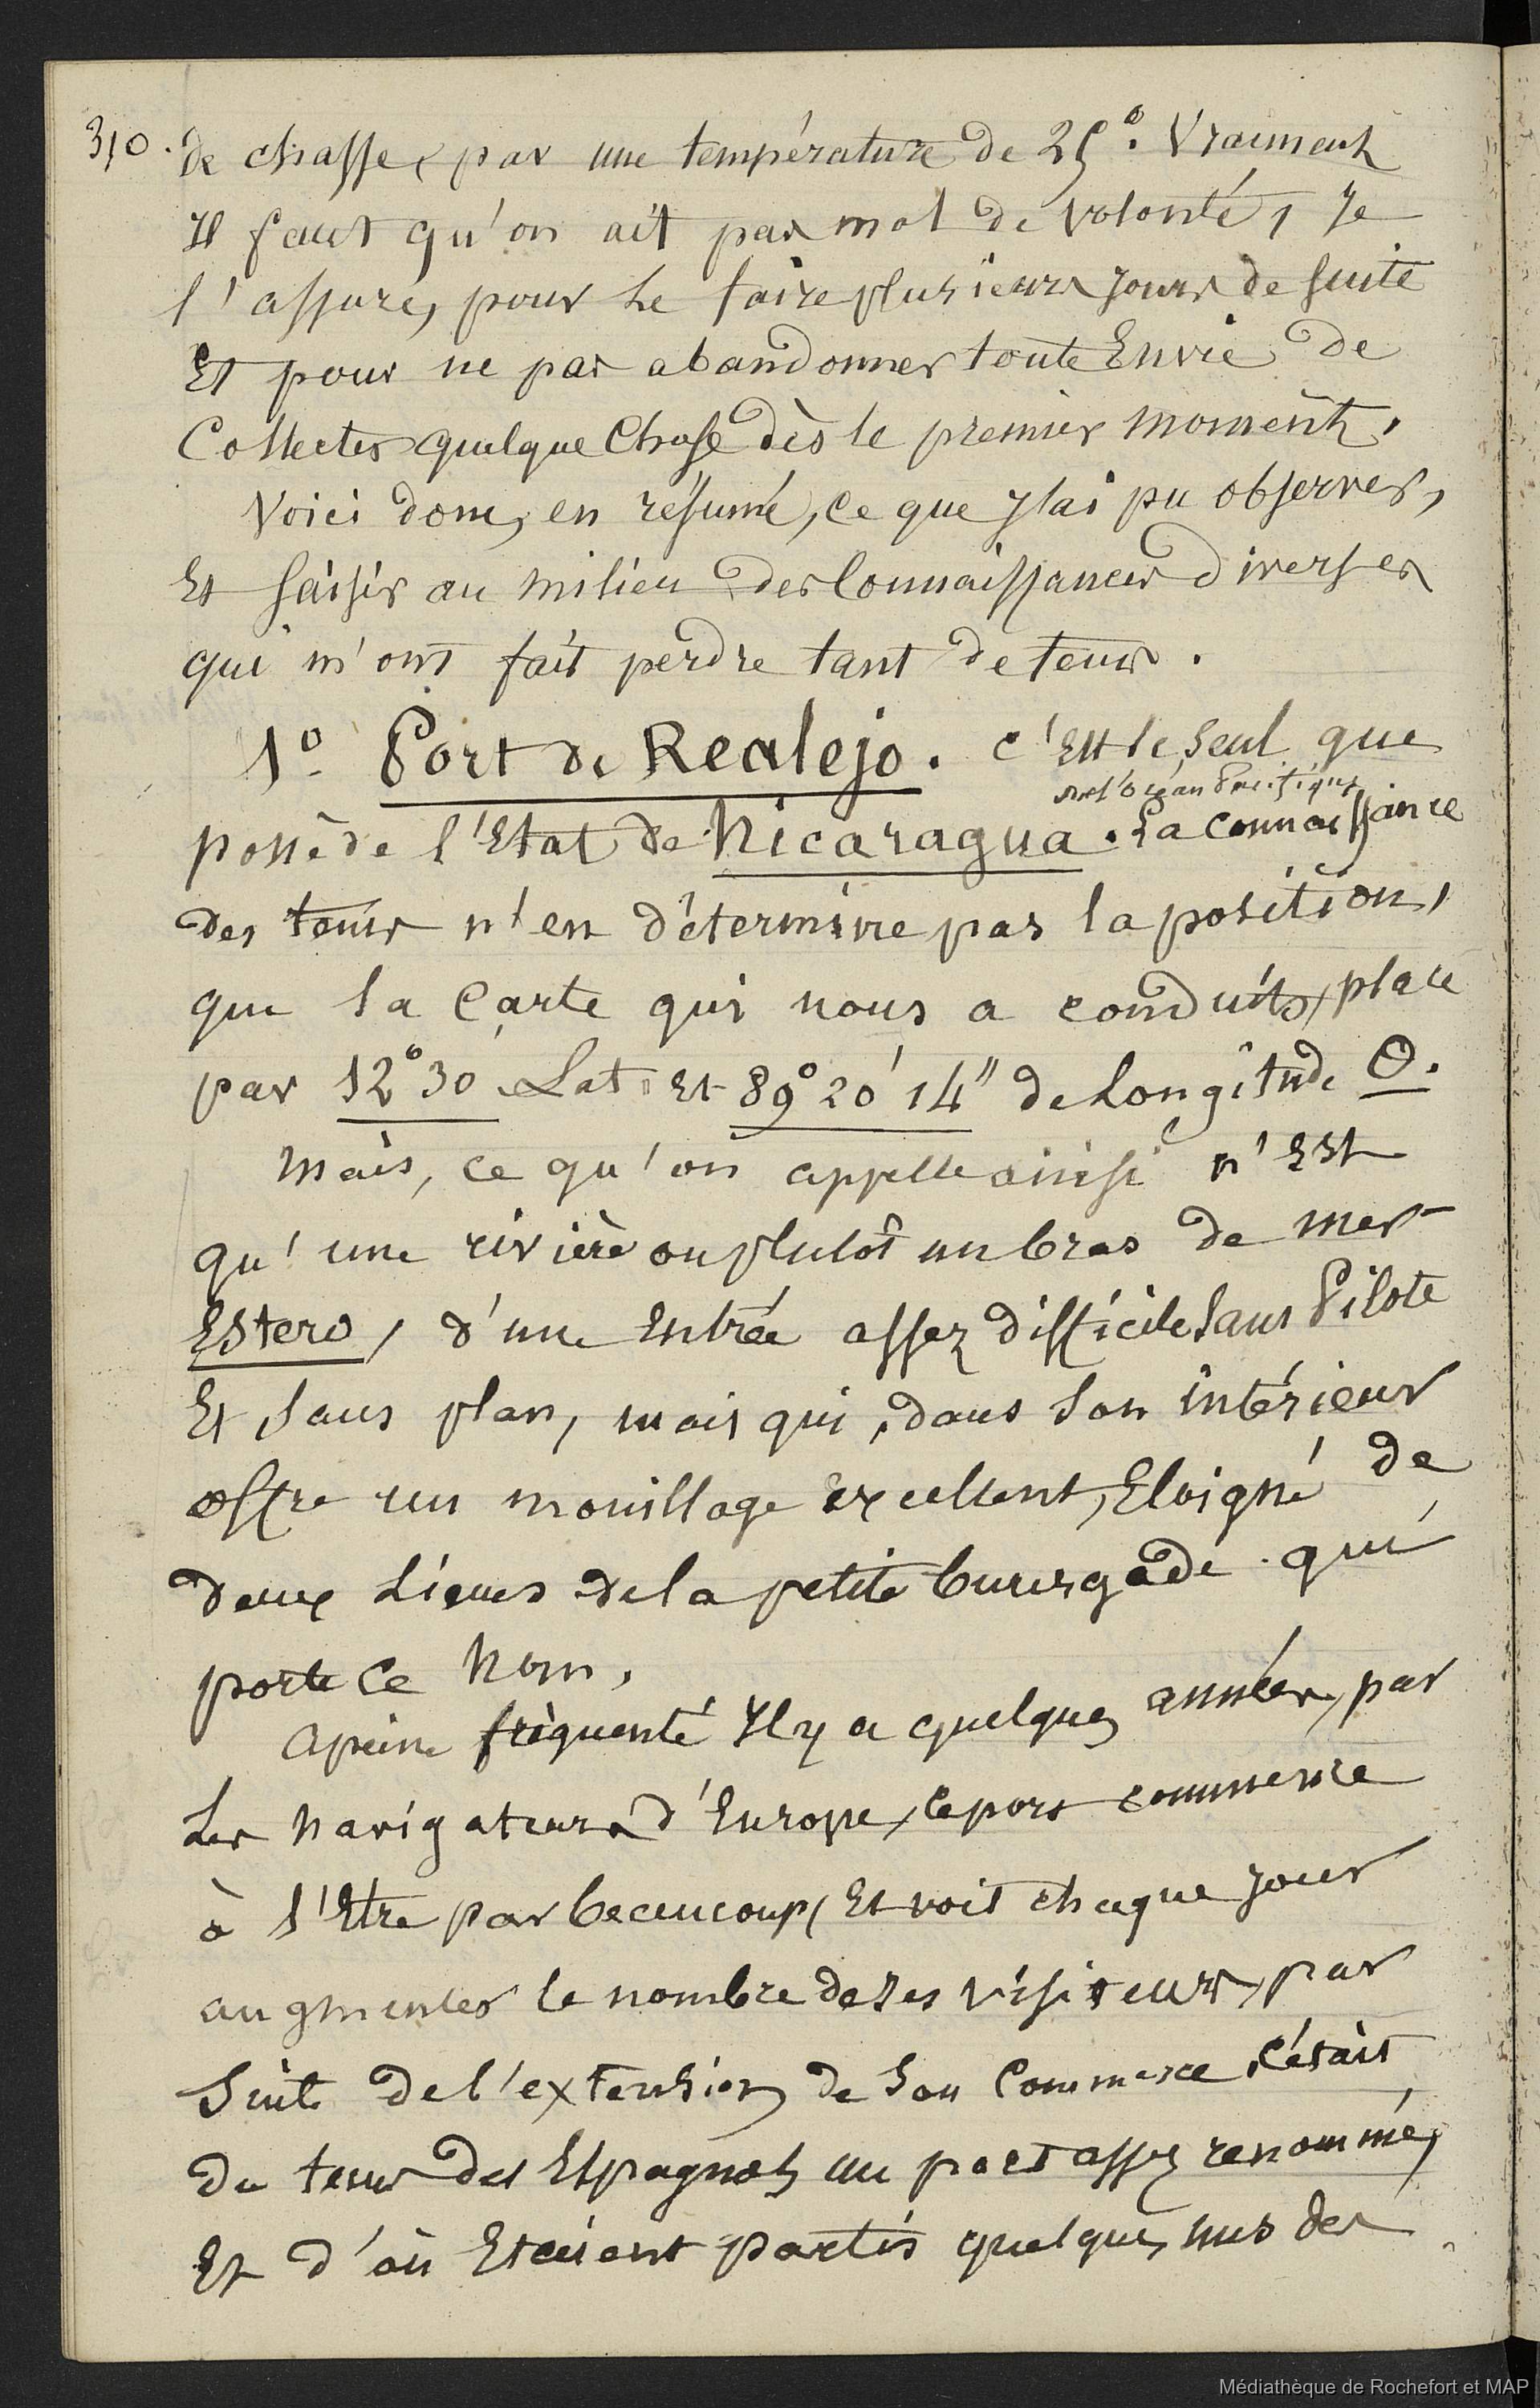 310. de chasse, par une température de 25°. Vraiment
Il faut qu'on ait pas mal de volonté, Je
l'assure, pour le faire plusieurs jours de suite
Et pour ne pas abandonner toute Envie de
Collecter quelque Chose dès le premier moment.
Voici donc, en résumé, ce que j'ai pu observer,
Et saisir au milieu des Connaissances diverses
qui m'ont fait perdre tant de tems.
1° Port de Realejo. C'Est le seul que
sur l'océan Pacifique
possède l'Etat de Nicaragua. La connaissance
des tems n'en détermine pas la position,
que la Carte qui nous a conduits, place
par 12°30' Lat. Et 89°20'14" de Longitude O.
Mais, ce qu'on appelle ainsi n'Est
qu'une rivière ou plutôt un bras de mer
Estero, d'une Entrée assez difficile sans Pilote
Et sans plan, mais qui, dans son intérieur
offre un mouillage excellent, Eloigné de
deux Lieues de la petite bourgade qui
porte ce Nom.
Apeine fréquenté Il y a quelques années, par
Les Navigateurs d'Europe, ce port commence
à l'Etre par beaucoup, Et voit chaque jour
augmenter le nombre de ses visiteurs, par
suite de l'extension de son Commerce. C'étais
du tems des Espagnols un port assez renommé,
Et d'où Etaient partis quelques uns des
Médiathèque de Rochefort et MAP